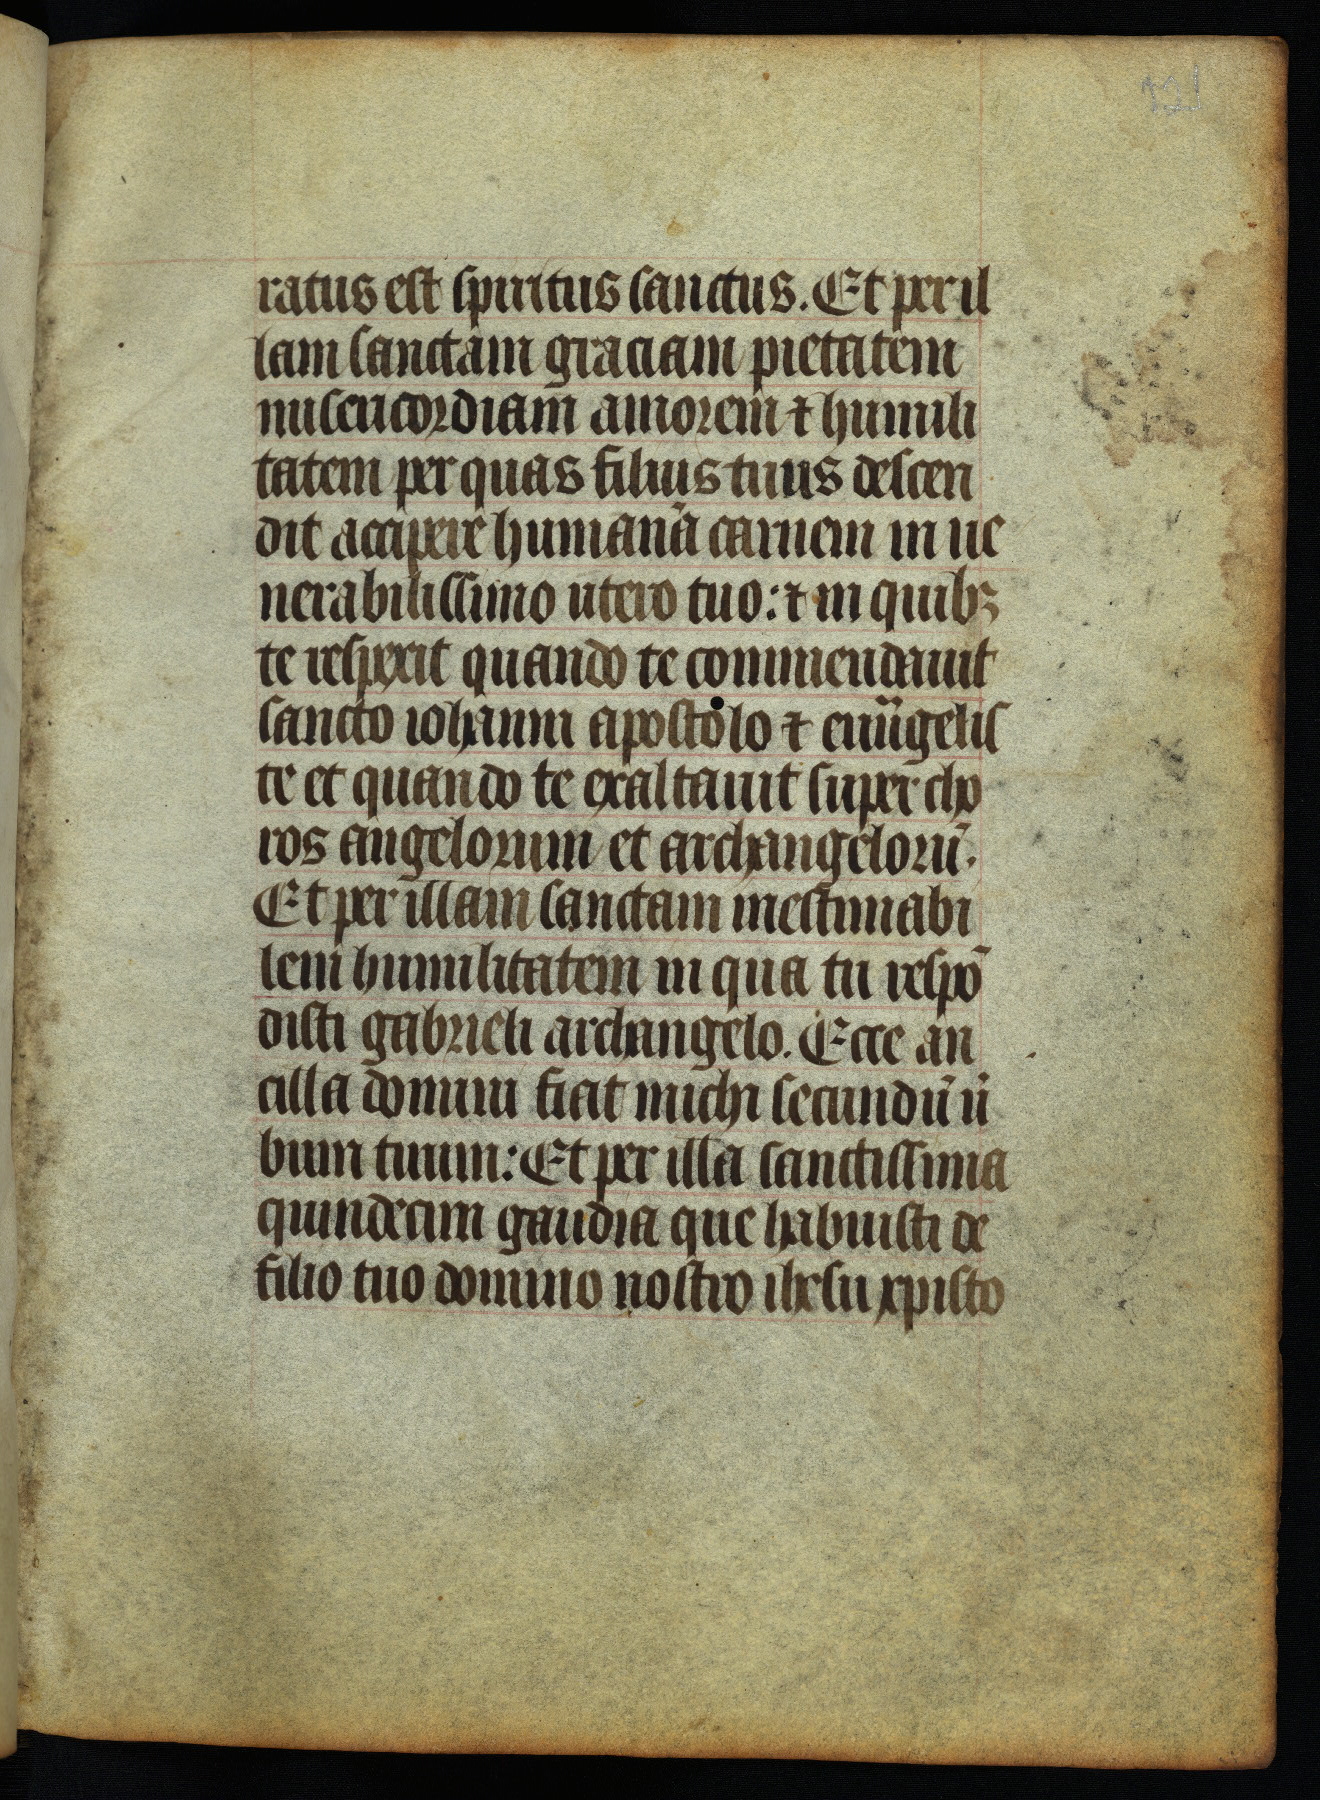 121
ratus est spiritus sanctus. Et per il
lam sanctam graciam pietatem
misericordiam amorem ⁊ humili
tatem per quas filius tuus descen
dit accipere humanā carnem in ue
nerabilissimo utero tuo: ⁊ in quibꝫ
te respexit quando te commendauit
sancto iohanni apostolo ⁊ euūgelis
te et quando te exaltauit super cho
ros angelorum et archangelorū.
Et per illam sanctam inestimabi
lem humilitatem in qua tu respō
disti gabrieli archangelo. Ecce an
cilla domini fiat michi secundū ū
bum tuum: Et per illa sanctissima
quindecim gaudia que habuisti de
filio tuo domino nostro ihesu xpisto